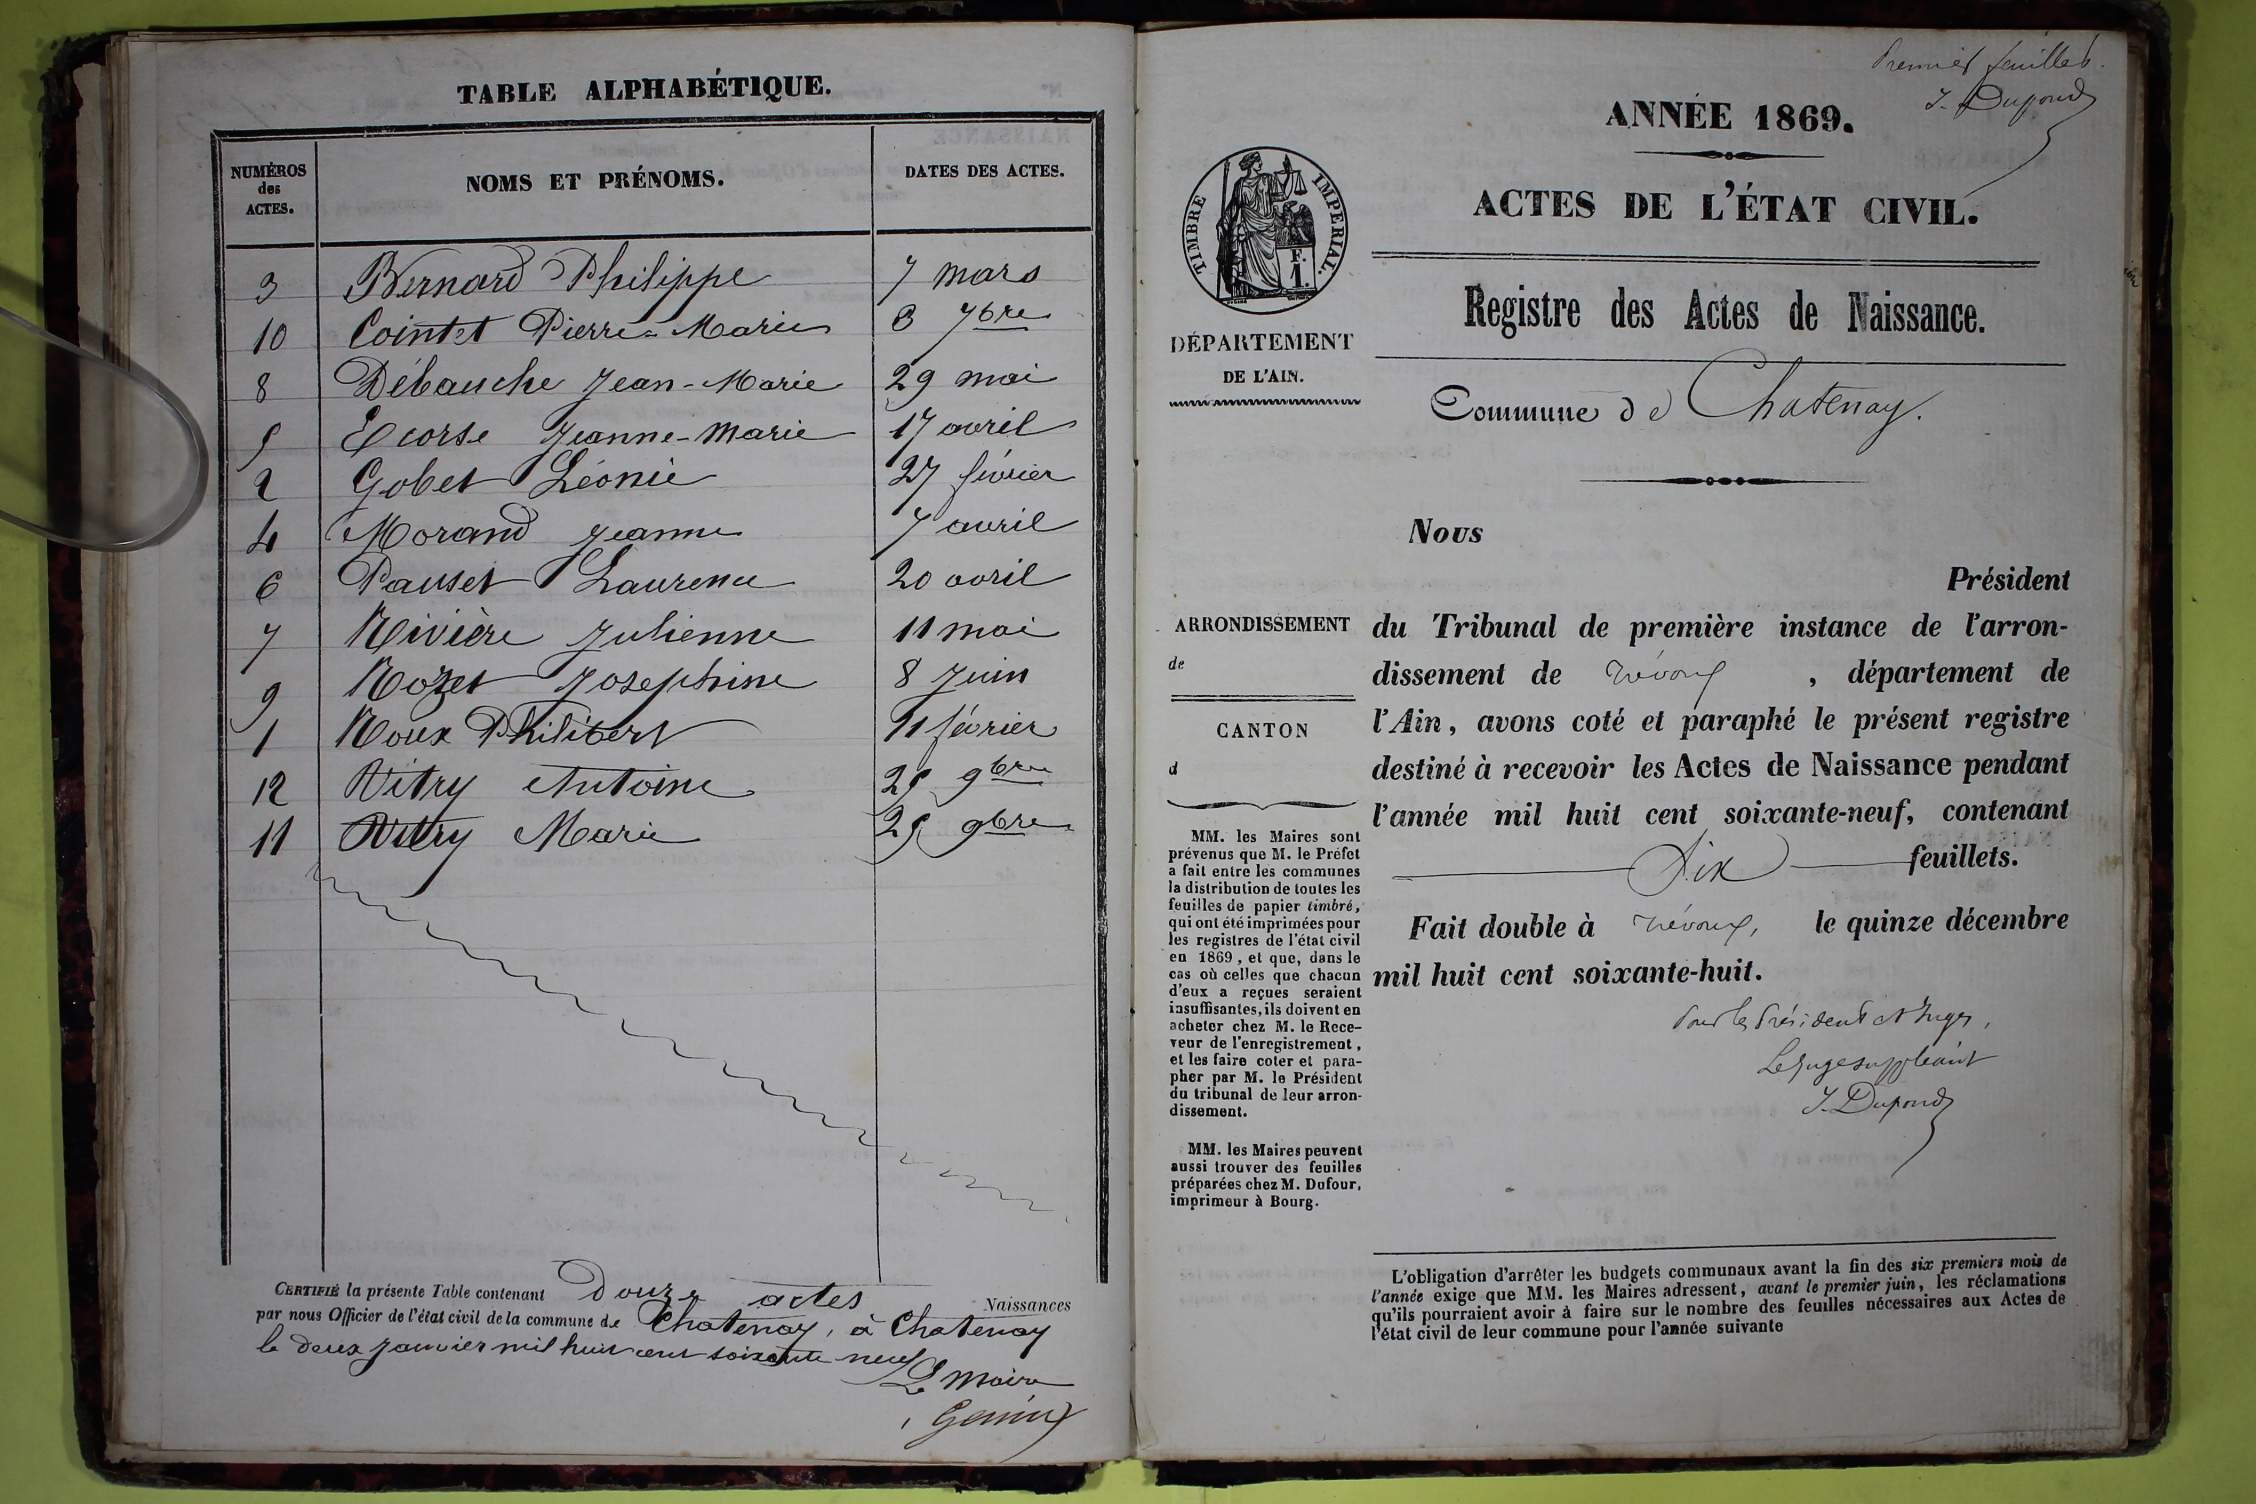 TABLE ALPHABÉTIQUE.
NUMÉROS des ACTES.
NOMS ET PRÉNOMS.
DATES DES ACTES.
3 Bernard Philippe 7 mars
10 Cointet Pierre-Marie 8 7bre
8 Débauche Jean-Marie 29 mai
5 Ecorse Jeanne-Marie 17 avril
2 Gobet Léonie 27 février
4 Morand Jeanne 7 avril
6 Pauset Laurence 20 avril
7 Rivière Julienne 11 mai
9 Rozet Josephine 8 Juin
1 Roux Philibert 11 février
12 Vitry Antoine 25 9bre
11 Vitry Marie 25 9bre
CERTIFIÉ la présente Table contenant Douze actes Naissances
par nous Officier de l'état civil de la commune de Chatenay, à Chatenay
le deux Janvier mil huit cent soixante neuf
Le Maire
Premier feuillet.
J. Dupond
ANNÉE 1869.
ACTES DE L'ÉTAT CIVIL.
TIMBRE IMPERIAL.
F.
1.
Registre des Actes de Naissance.
DÉPARTEMENT
DE L'AIN.
Commune de Chatenay.
Nous
Président
ARRONDISSEMENT
de
CANTON
d
du Tribunal de première instance de l'arron-
dissement de Trévoux, département de
l'Ain, avons coté et paraphé le présent registre
destiné à recevoir les Actes de Naissance pendant
l'année mil huit cent soixante-neuf, contenant
Six feuillets.
Fait double à Trévoux, le quinze décembre
mil huit cent soixante-huit.
Pour les Président et Juges,
Le Juge suppléant
J. Dupond
MM. les Maires sont
prévenus que M. le Préfet
a fait entre les communes
la distribution de toutes les
feuilles de papier timbré,
qui ont été imprimées pour
les registres de l'état civil
en 1869, et que, dans le
cas où celles que chacun
d'eux a reçues seraient
insuffisantes, ils doivent en
acheter chez M. le Rece-
veur de l'enregistrement,
et les faire coter et para-
pher par M. le Président
du tribunal de leur arron-
dissement.
MM. les Maires peuvent
aussi trouver des feuilles
préparées chez M. Dufour,
imprimeur à Bourg.
L'obligation d'arrêter les budgets communaux avant la fin des six premiers mois de
l'année exige que MM. les Maires adressent, avant le premier juin, les réclamations
qu'ils pourraient avoir à faire sur le nombre des feuilles nécessaires aux Actes de
l'état civil de leur commune pour l'année suivante